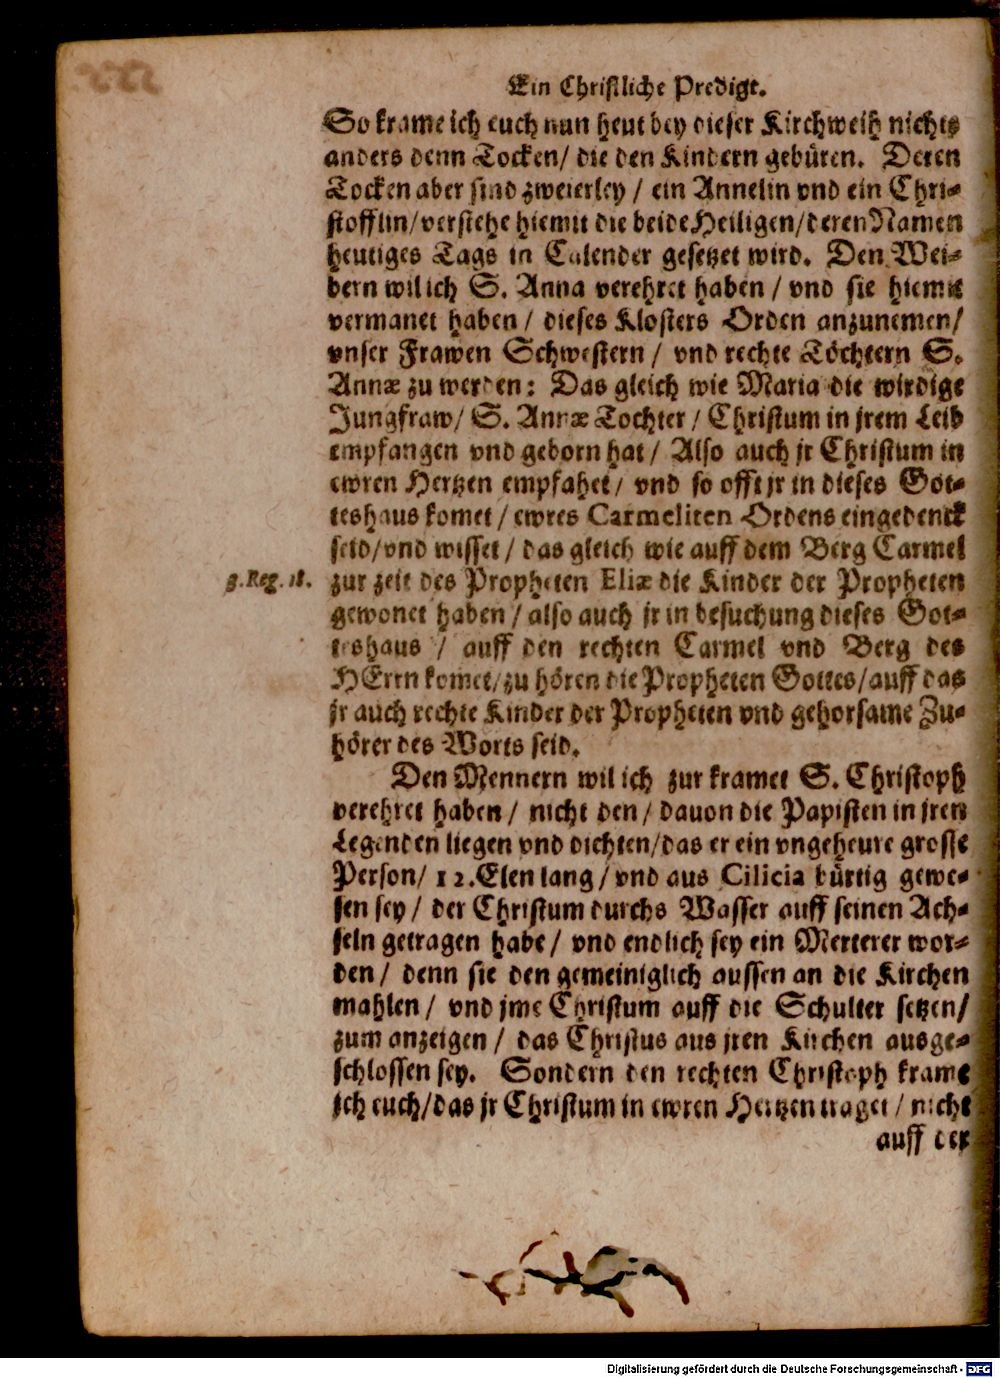 Ein Christliche Predigt.
So krame ich euch nun heut bey dieser Kirchweih nichts
anders denn Tocken/ die den Kindern gebüren. Deren
Tocken aber sind zweierley / ein Annelin vnd ein Chri-
stofflin/ verstehe hiemit die beide Heiligen/ deren Namen
heutiges Tags in Calender gesetzet wird. Den Wei-
bern wil ich S. Anna verehret haben / vnd sie hiemit
vermanet haben / dieses Klosters Orden anzunemen/
vnser Frawen Schwestern / vnd rechte Töchtern S.
Annæ zu werden: Das gleich wie Maria die wirdige
Jungfraw/ S. Annæ Tochter / Christum in jrem Leib
empfangen vnd geborn hat / Also auch jr Christum in
ewren Hertzen empfahet / vnd so offt jr in dieses Got-
teshaus komet / ewres Carmeliten Ordens eingedenck
seid/ vnd wisset / das gleich wie auff dem Berg Carmel
3. Reg. 18. zur zeit des Propheten Eliæ die Kinder der Propheten
gewonet haben / also auch jr in besuchung dieses Got-
teshaus / auff den rechten Carmel vnd Berg des
HErrn komet/ zu hören die Propheten Gottes/ auff das
jr auch rechte Kinder der Propheten vnd gehorsame Zu-
hörer des Worts seid.
Den Mennern wil ich zur kramet S. Christoph
verehret haben / nicht den / dauon die Papisten in jren
Legenden liegen vnd dichten/ das er ein vngeheure grosse
Person/ 12. Elen lang / vnd aus Cilicia bürtig gewe-
sen sey / der Christum durchs Wasser auff seinen Ach-
seln getragen habe / vnd endlich sey ein Merterer wor-
den / denn sie den gemeiniglich aussen an die Kirchen
mahlen / vnd jme Christum auff die Schulter setzen/
zum anzeigen / das Christus aus jren Kirchen ausge-
schlossen sey. Sondern den rechten Christoph krame
ich euch/ das jr Christum in ewren Hertzen traget / nicht
auff der
Digitalisierung gefördert durch die Deutsche Forschungsgemeinschaft - DFG